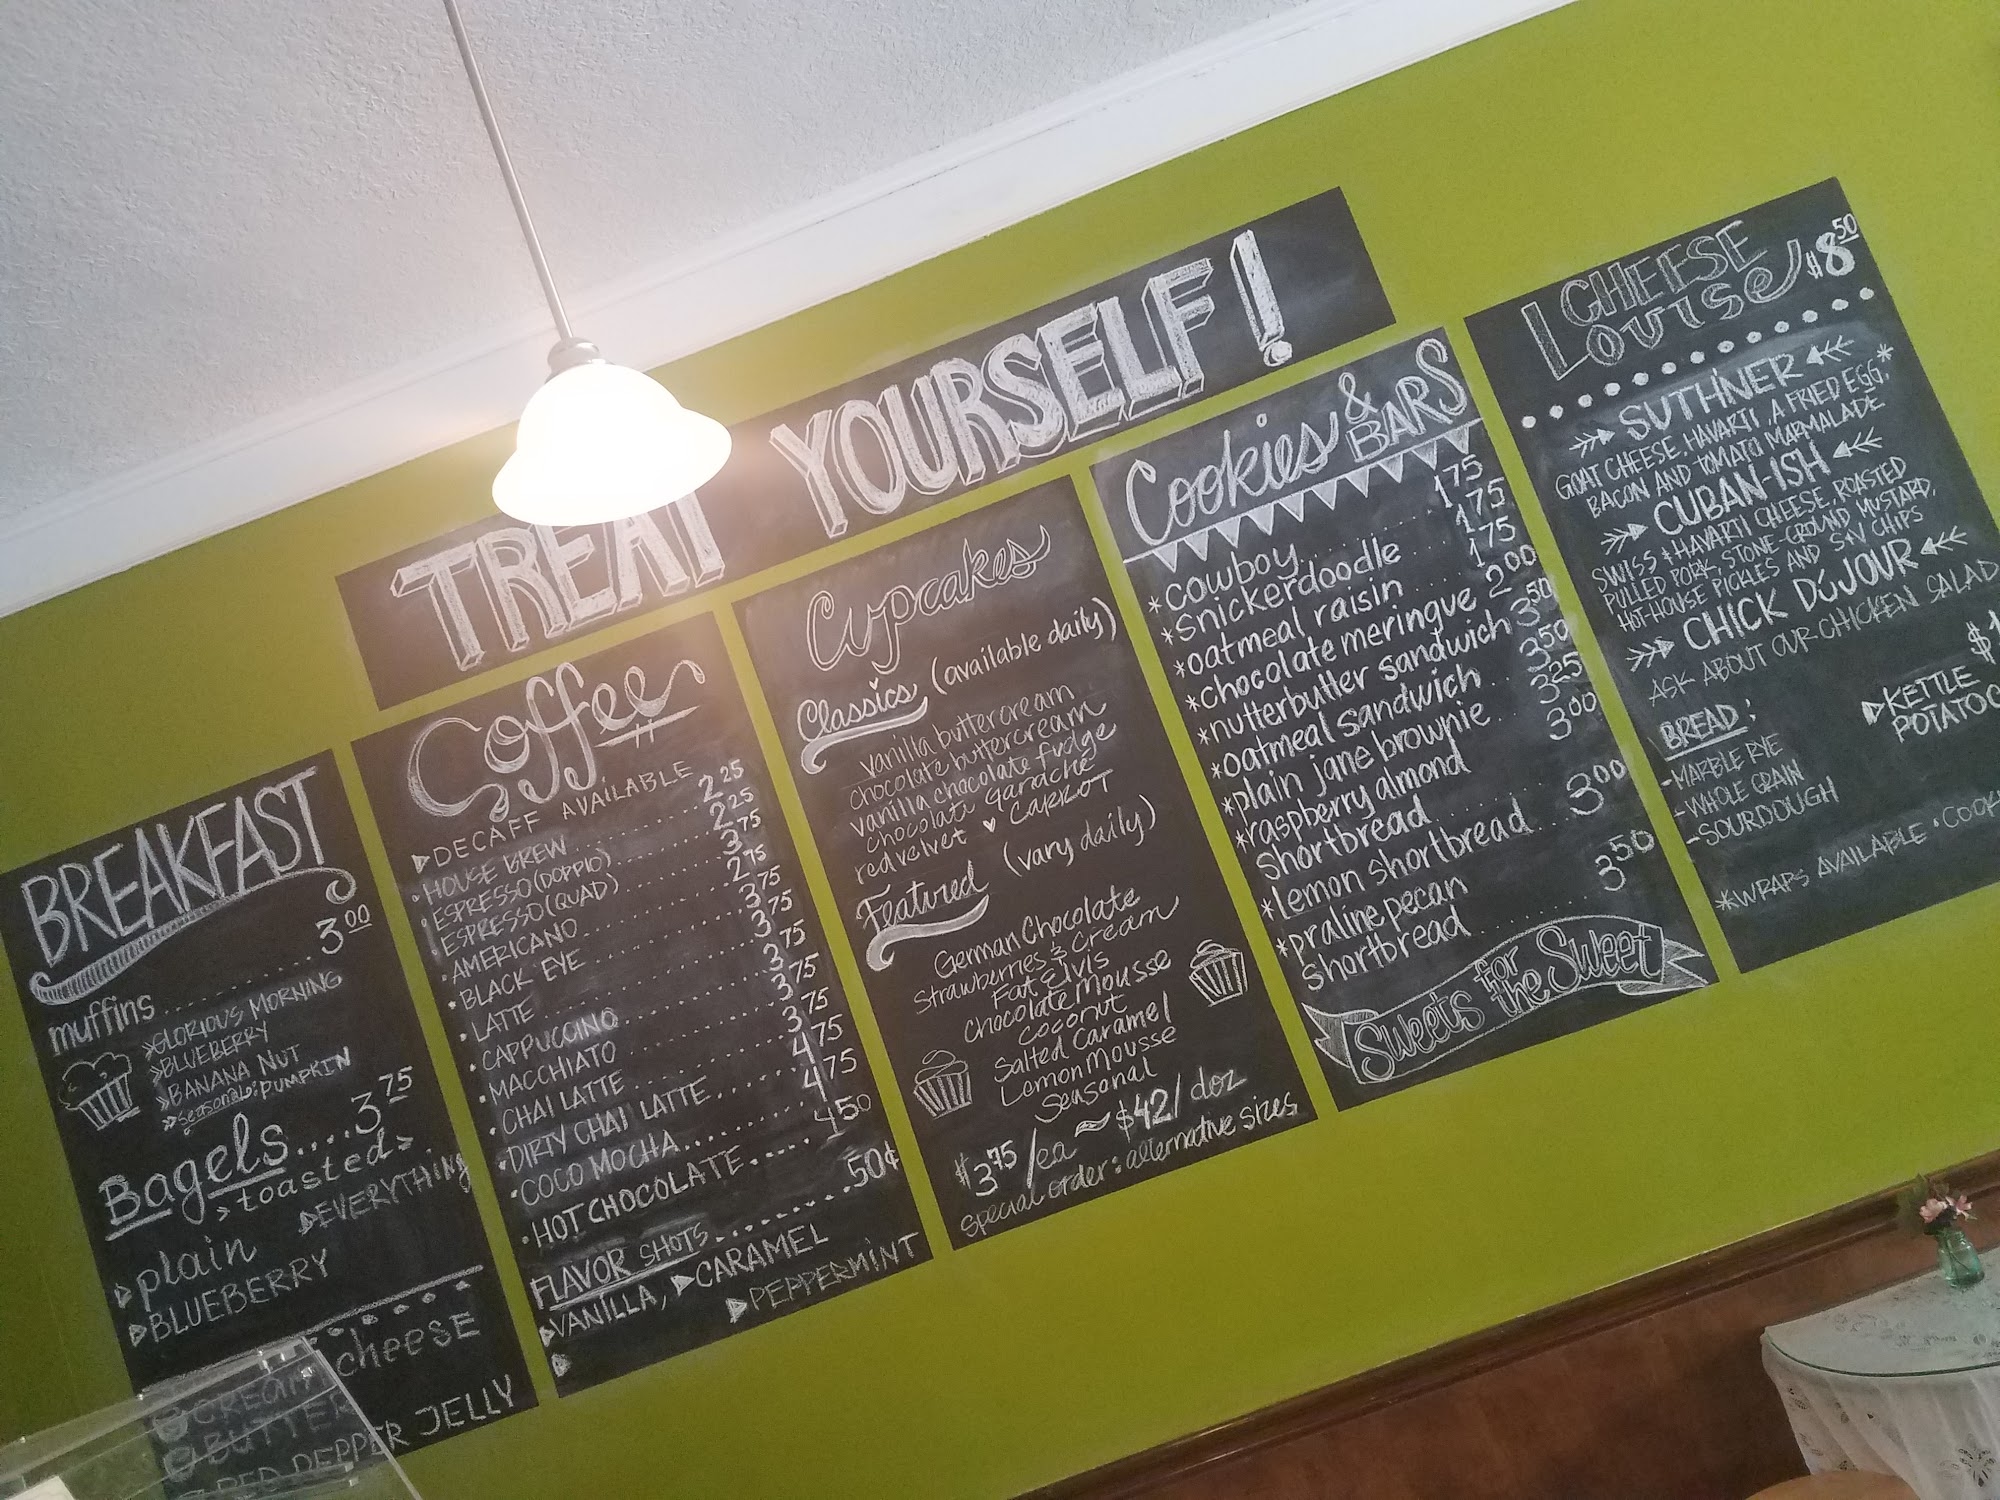 TREAT YOURSELF!
BREAKFAST
muffins.......... 3.00
GLORIOUS MORNING
BLUEBERRY
BANANA NUT
Seasonal: PUMPKIN
Bagels....3.75
>toasted>
EVERYTHING
plain
BLUEBERRY
CREAM cheese
BUTTER
RED PEPPER JELLY
Coffee
DECAFF AVAILABLE
HOUSE BREW 2.25
ESPRESSO (DOPPIO) 2.25
ESPRESSO (QUAD) 3.75
AMERICANO 2.75
BLACK EYE 3.75
LATTE 3.75
CAPPUCCINO 3.75
MACCHIATO 3.75
CHAI LATTE 3.75
DIRTY CHAI LATTE 4.75
COCO MOCHA 4.75
HOT CHOCOLATE 4.50
FLAVOR SHOTS .50¢
VANILLA, CARAMEL
PEPPERMINT
Cupcakes
Classics (available daily)
vanilla buttercream
chocolate buttercream
vanilla chocolate fudge
chocolate ganache
red velvet ♥ CARROT
Featured (vary daily)
German Chocolate
Strawberries & Cream
Fat Elvis
Chocolate Mousse
Coconut
Salted Caramel
Lemon Mousse
Seasonal
$3.75/ea ~ $42/doz
special order: alternative sizes
Cookies & BARS
*cowboy 1.75
*snickerdoodle 1.75
*oatmeal raisin 1.75
*chocolate meringue 2.00
*nutterbutter sandwich 3.50
*oatmeal sandwich 3.50
*plain jane brownie 3.25
*raspberry almond 3.00
shortbread
*lemon shortbread 3.00
*praline pecan
shortbread 3.50
Sweets for the Sweet
CHEESE
Louise $8.50
SUTH'NER
GOAT CHEESE, HAVARTI, A FRIED EGG,*
BACON AND TOMATO MARMALADE
CUBAN-ISH
SWISS & HAVARTI CHEESE, ROASTED
PULLED PORK, STONE-GROUND MUSTARD,
HOT-HOUSE PICKLES AND S+V CHIPS
CHICK DÚJOUR
ASK ABOUT OUR CHICKEN SALAD
BREAD:
-MARBLE RYE
-WHOLE GRAIN
-SOURDOUGH
KETTLE
*WRAPS AVAILABLE